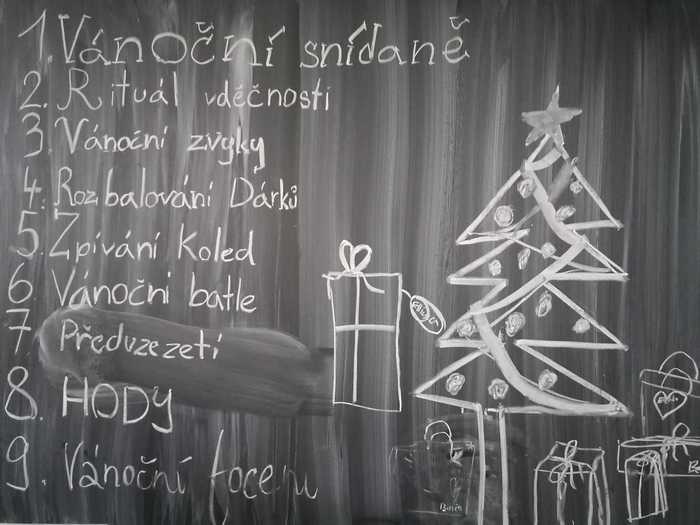 1. Vánoční snídaně
2. Rituál vděčnosti
3. Vánoční zvyky
4. Rozbalování Dárků
5. Zpívání Koled
6. Vánoční batle
7. Předvzezetí
8. HODY
9. Vánoční focení